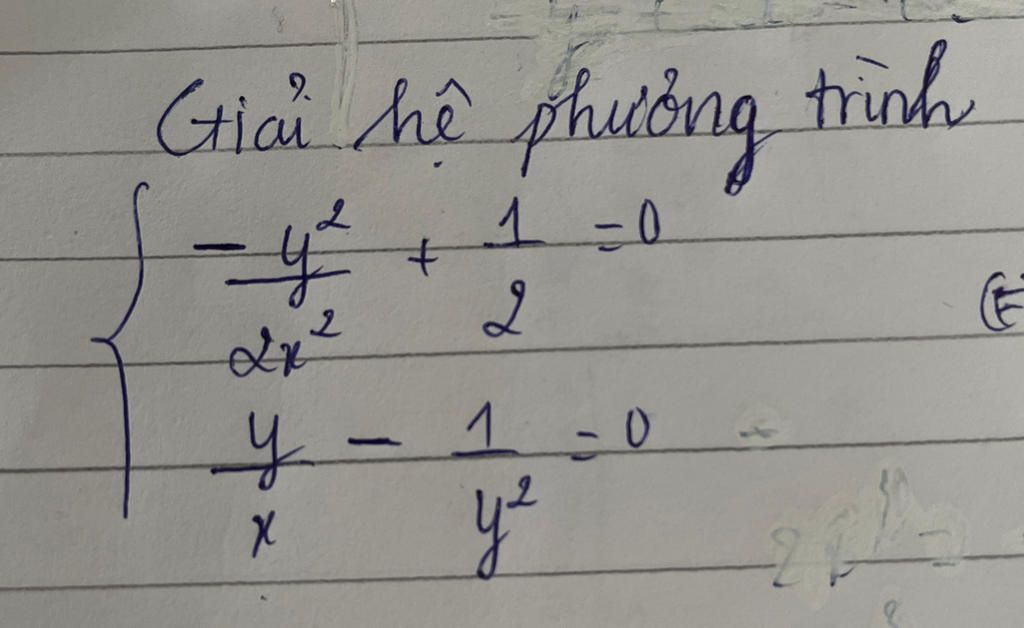 Giải hệ phương trình
- y²/2x² + 1/2 = 0
(E
y/x - 1/y² = 0